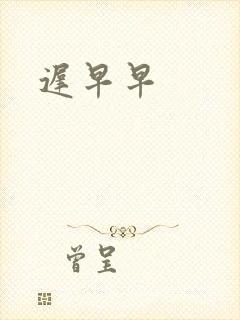 遲早早
曾呈